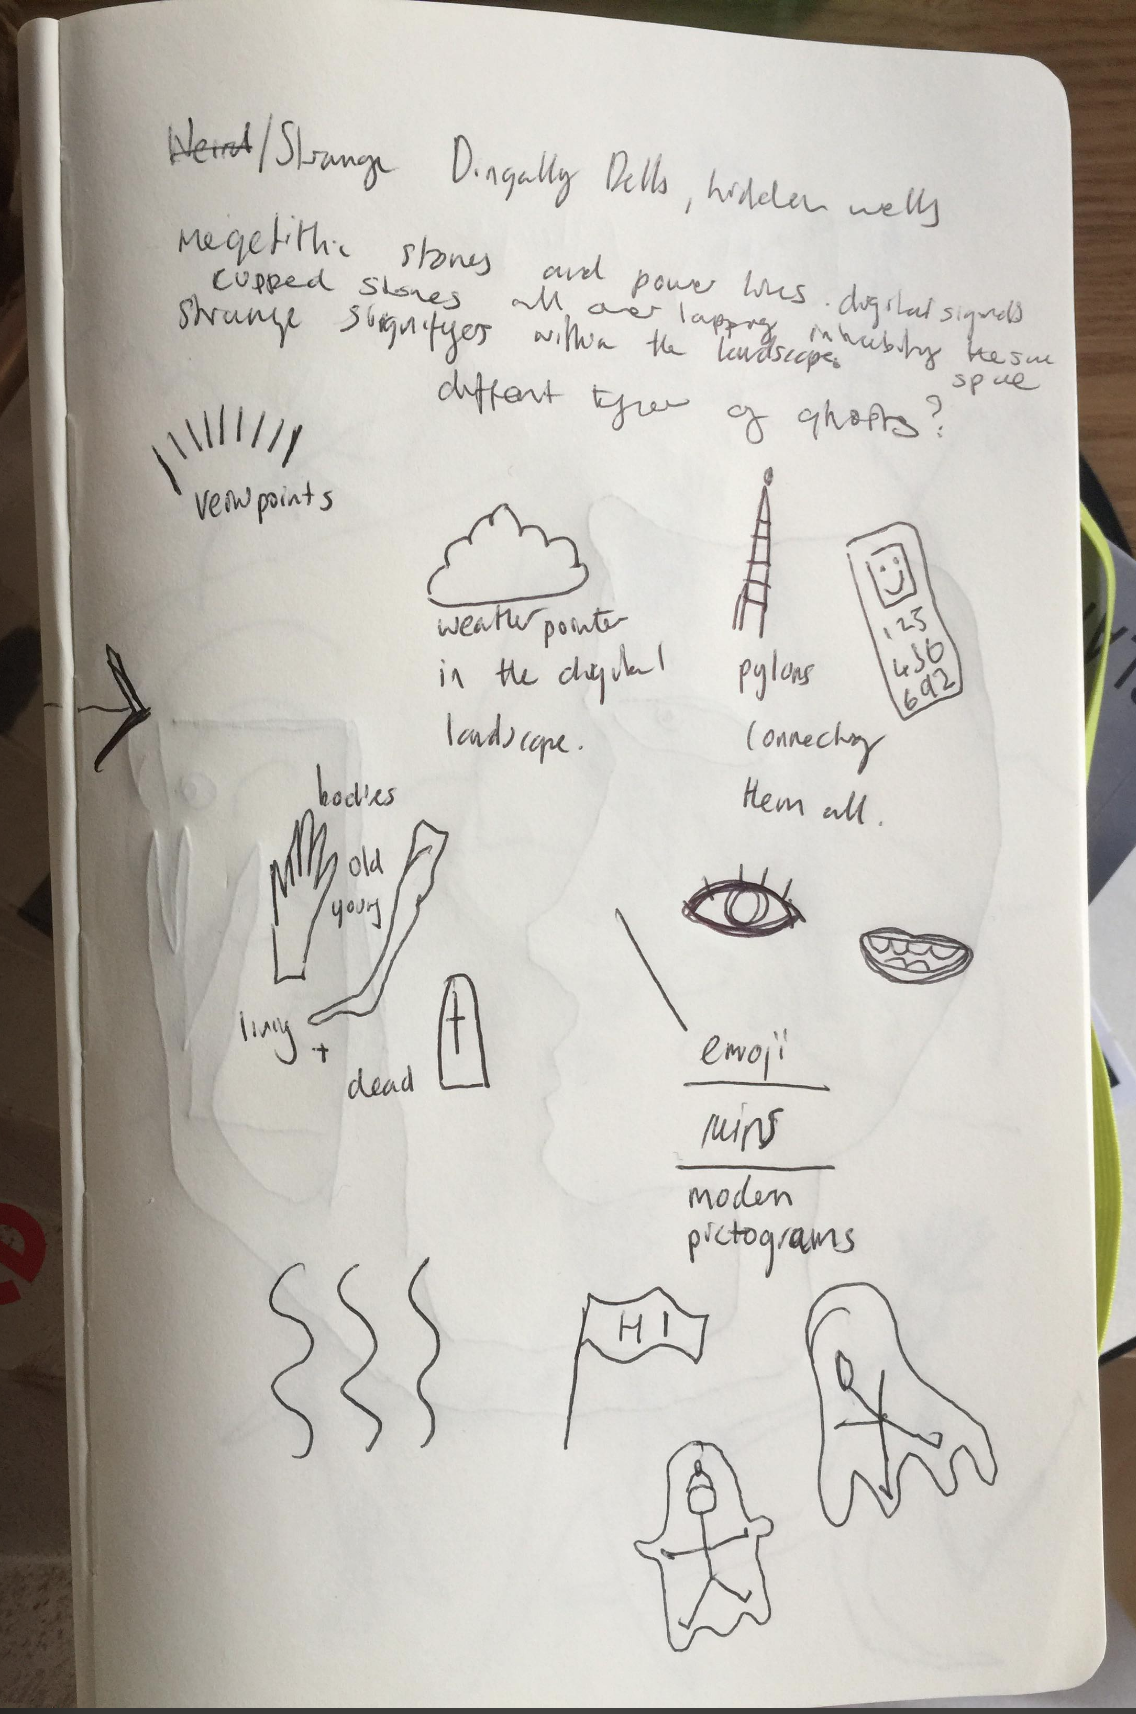 Weird/Strange Dingally Dells, hidden wells
megelithic stones and power lines. digital signals
cupped stones all over lapping inhabiting the same space
strange signifyers within the landscape.
diffent types of ghosts?
veiwpoints
weather pointer
in the digital
landscape.
pylons
connecting
them all.
123
456
692
bodies
old
young
living
+
dead
emoji
ruins
modern
pictograms
HI